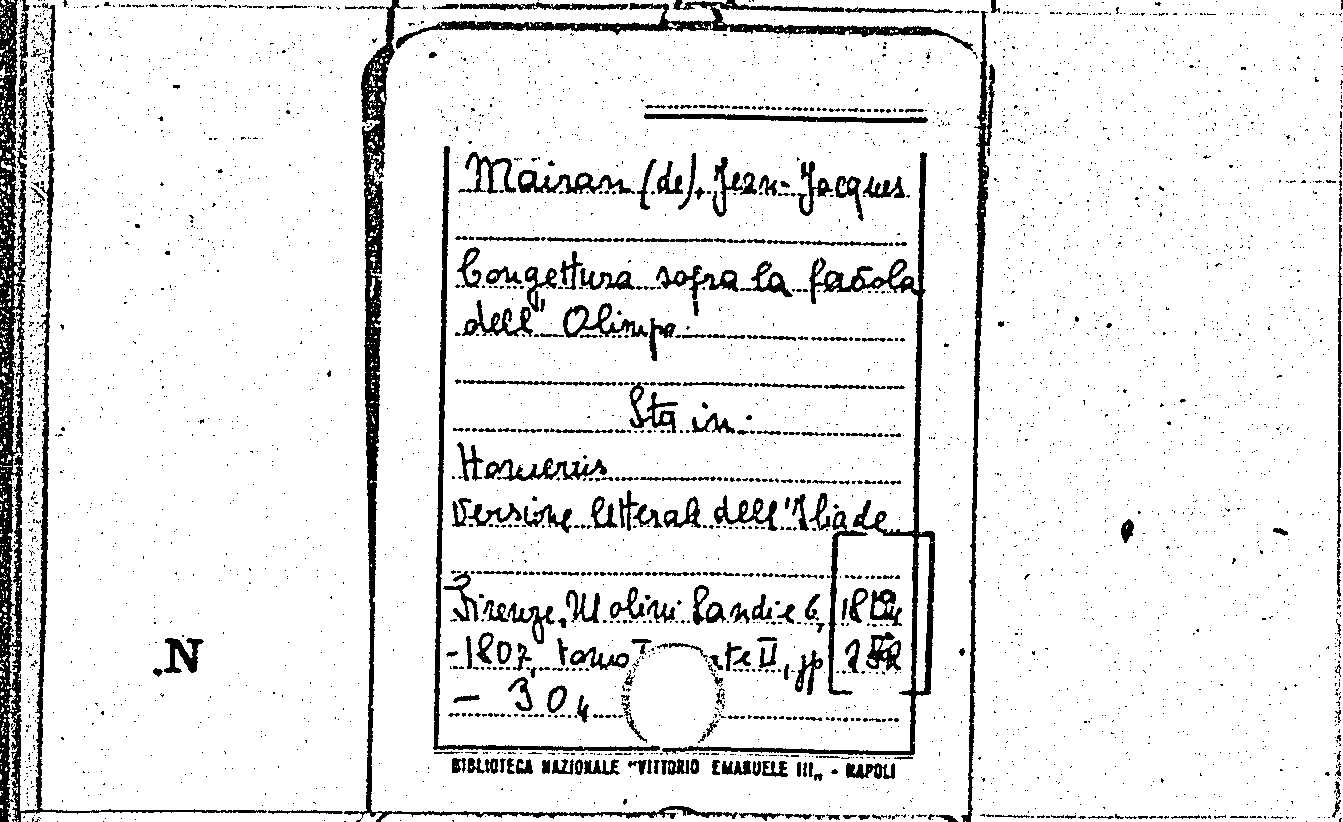 Mairan (de), Jean-Jacques
Congettura sopra la favola
dell' Olimpo.
Sta in:
Homerus
Versione letterale dell'Iliade
Firenze, Molini Landi e C,
-1807, tomo II, pp
- 304
.N
BIBLIOTECA NAZIONALE "VITTORIO EMANUELE III„ - NAPOLI